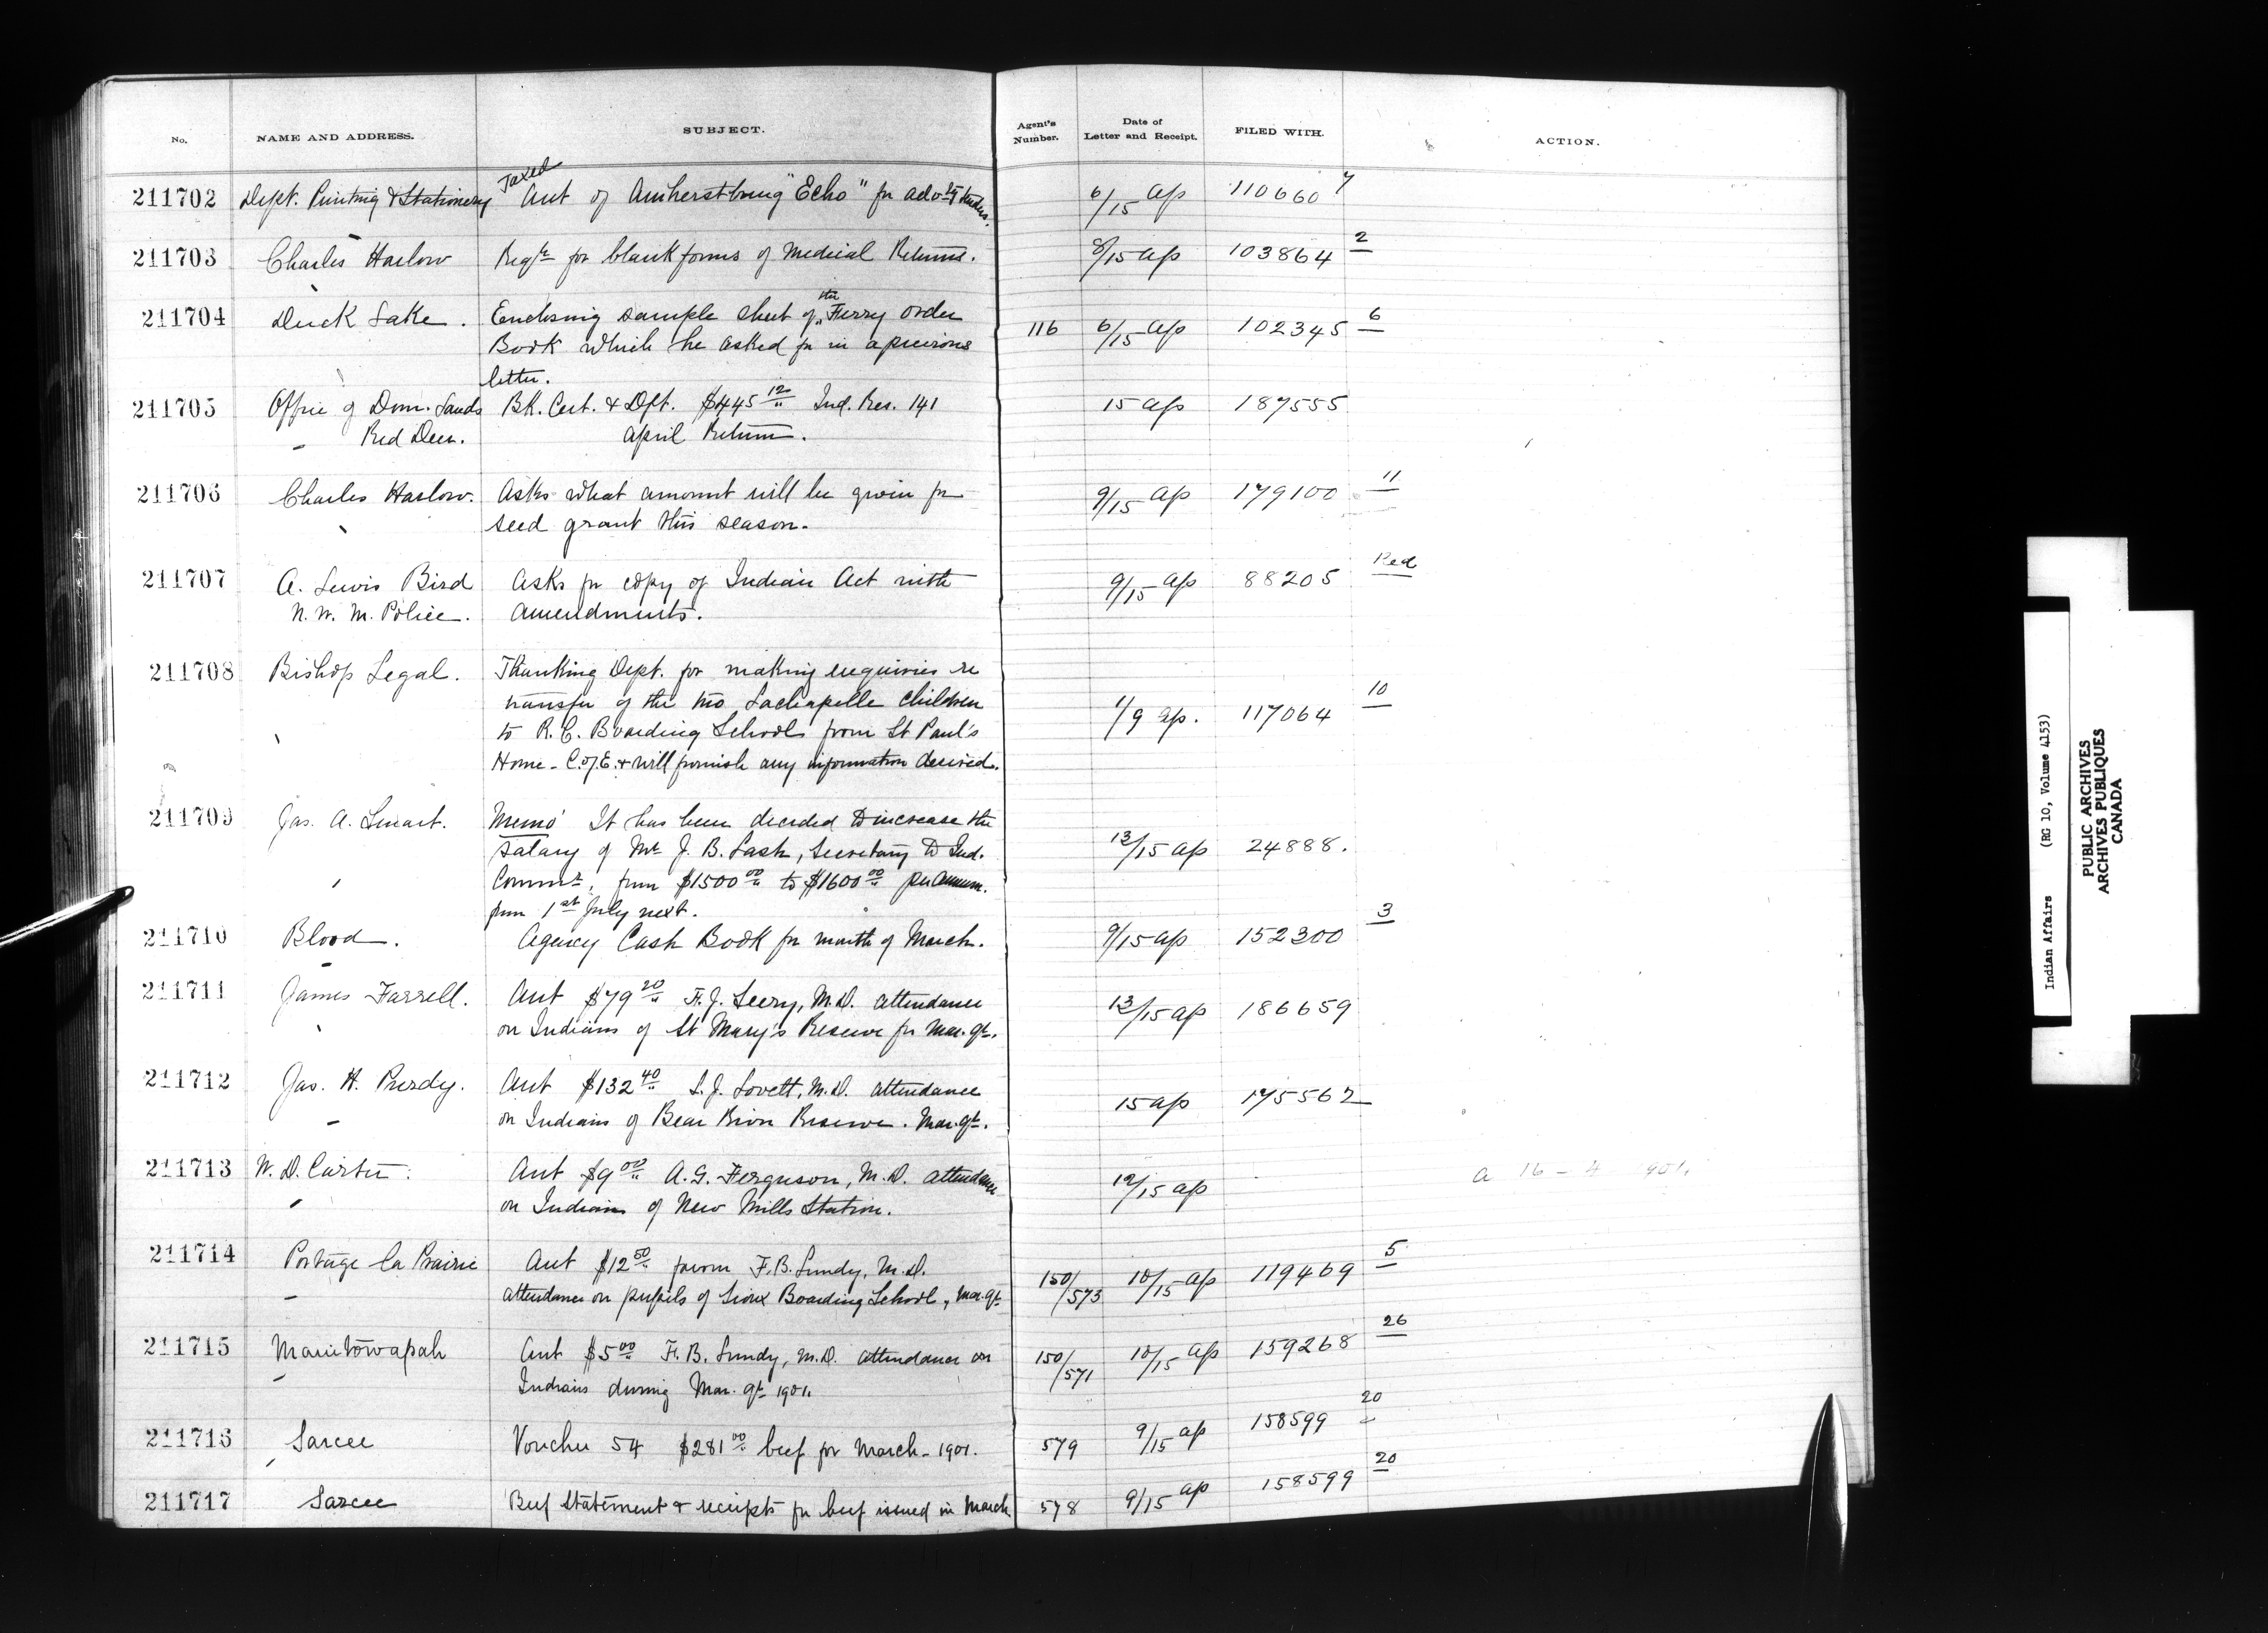 No. NAME AND ADDRESS. SUBJECT. Agent's Number. Date of Letter and Receipt. FILED WITH. ACTION.
Taxed
211702 Dept. Printing & Stationery Acct of Amherstburg "Echo" for adv-tg 6/15 Ap 110660 7
211703 Charles Harlow Reqte for blank forms of Medical Returns. 8/15 Ap 103864 2
211704 Duck Lake. Enclosing sample sheet of the Ferry Order 116 6/15 Ap 102345 6
Book which he asked for in a previous
letter.
211705 Office of Dom. Lands Bk. Cert. & Dft. $445 12 Ind. Res. 141 15 Ap 187555
Red Deer. April Return.
211706 Charles Harlow. Asks what amount will be given for 9/15 Ap 179100 11
seed grant this season.
211707 A. Lewis Bird Asks for copy of Indian Act with 9/15 Ap 88205 Red
N. W. M. Police. Amendments.
211708 Bishop Legal. Thanking Dept. for making enquiries re
transfer of the two Lachapelle children 1/9 Ap. 117064 10
to R. C. Boarding Schools from St Paul's
Home - C. of E. & will furnish any information desired.
211709 Jas. A. Smart. Memo It has been decided to increase the
salary of Mr J. B. Lash, Secretary to Ind. 13/15 Ap 24888.
Commr, from $1500 00 to $1600 00 per annum.
from 1st July next.
211710 Blood. Agency Cash Book for month of March. 9/15 Ap 152300 3
211711 James Farrell. Acct $79 20 F. J. Seery, M.D. attendance 13/15 Ap 186659
on Indians of St Mary's Reserve for Mar. qt.
211712 Jas. H. Purdy. Acct $132 40 L. J. Lovett, M.D. attendance 15 Ap 175562
on Indians of Bear River Reserve. Mar. qt.
211713 W. D. Carter. Acct $9 00 A. G. Ferguson, M.D. attendance 12/15 Ap a 16 - 4 1901.
on Indians of New Mills Station.
211714 Portage la Prairie Acct $12 50 favor F. B. Lundy, M.D. 150/573 10/15 Ap 119469 5
attendance on pupils of Sioux Boarding School, Mar. qt
211715 Manitowapah Acct $5 00 F. B. Lundy, M.D. attendance on 150/571 10/15 Ap 159268 26
Indians during Mar. qt 1901.
211716 Sarcee Voucher 54 $281 00 beef for March - 1901. 579 9/15 Ap 158599 20
211717 Sarcee Beef Statement & receipts for beef issued in March 578 9/15 Ap 158599 20
Indian Affairs (RG 10, Volume 4153)
PUBLIC ARCHIVES
ARCHIVES PUBLIQUES
CANADA